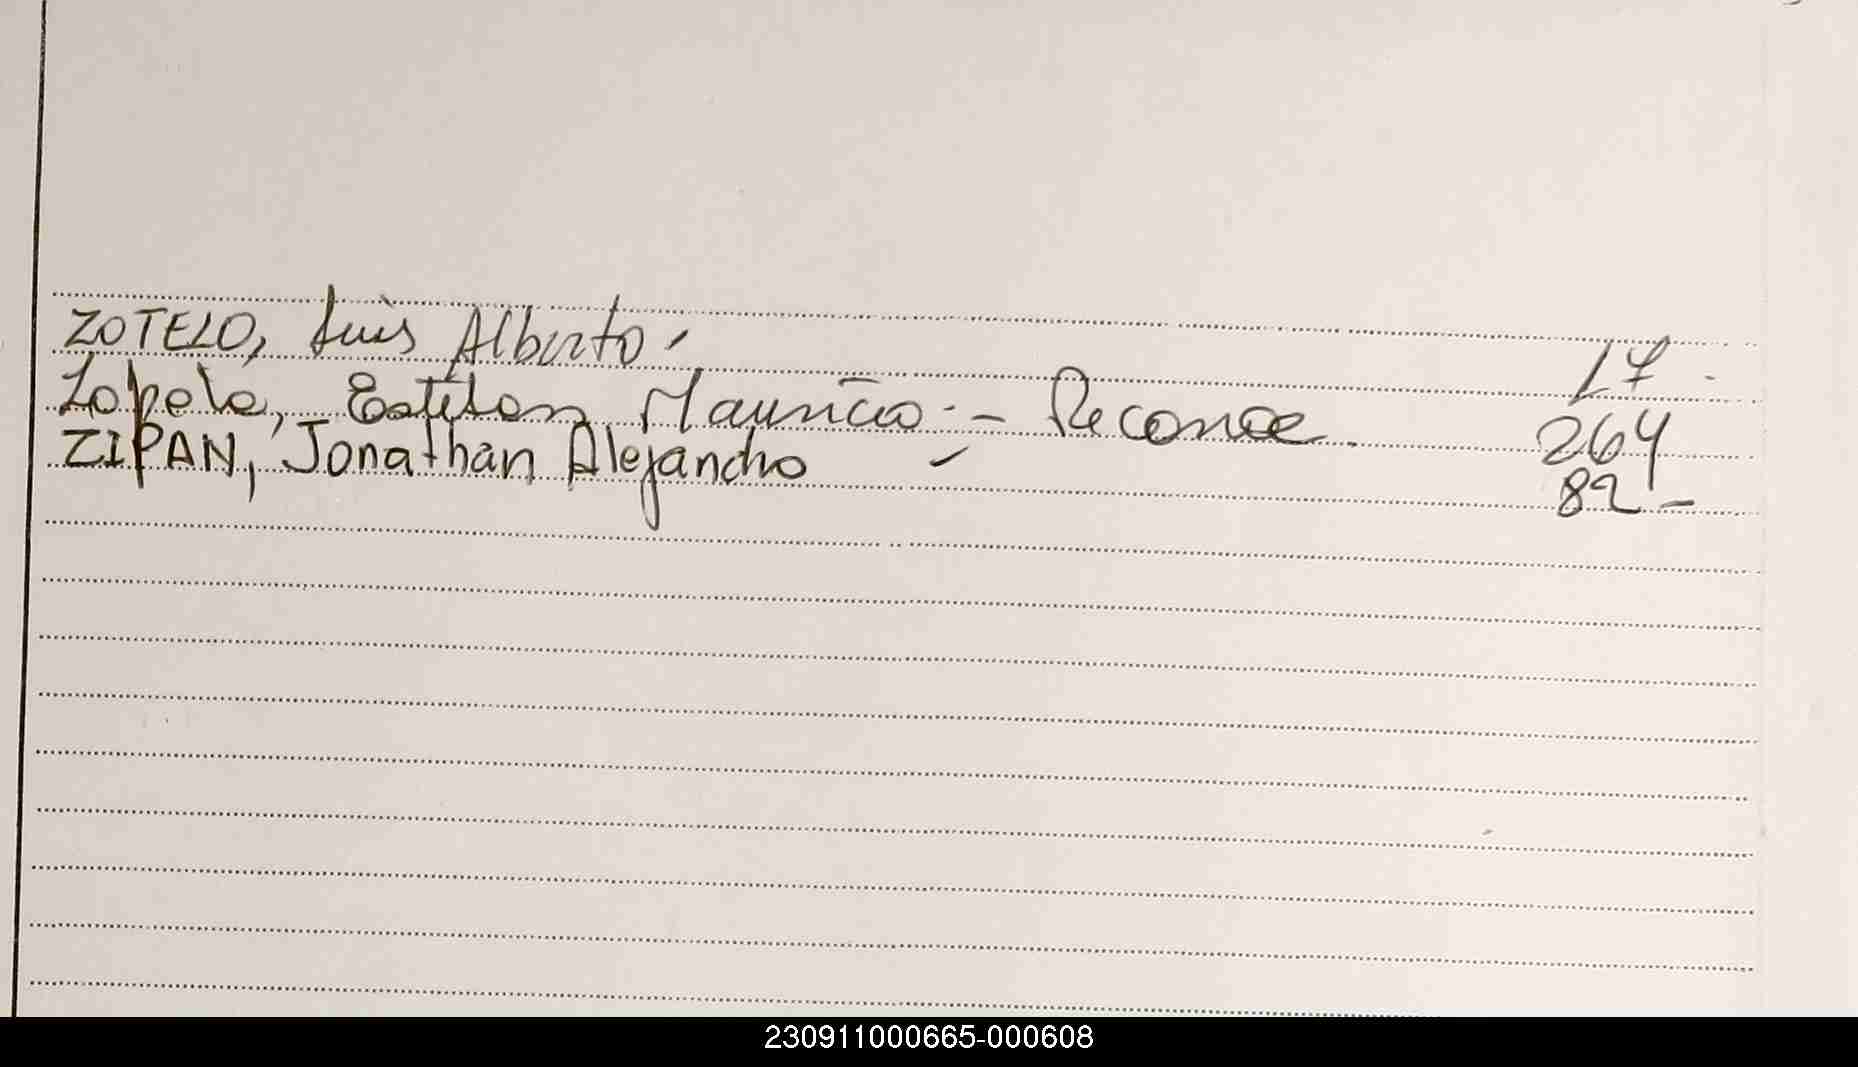 ZOTELO, Luis Alberto. 17.
Zapela, Esteban Mauricio.- Reconoce. 264
ZIPAN, Jonathan Alejandro - 82-
230911000665-000608